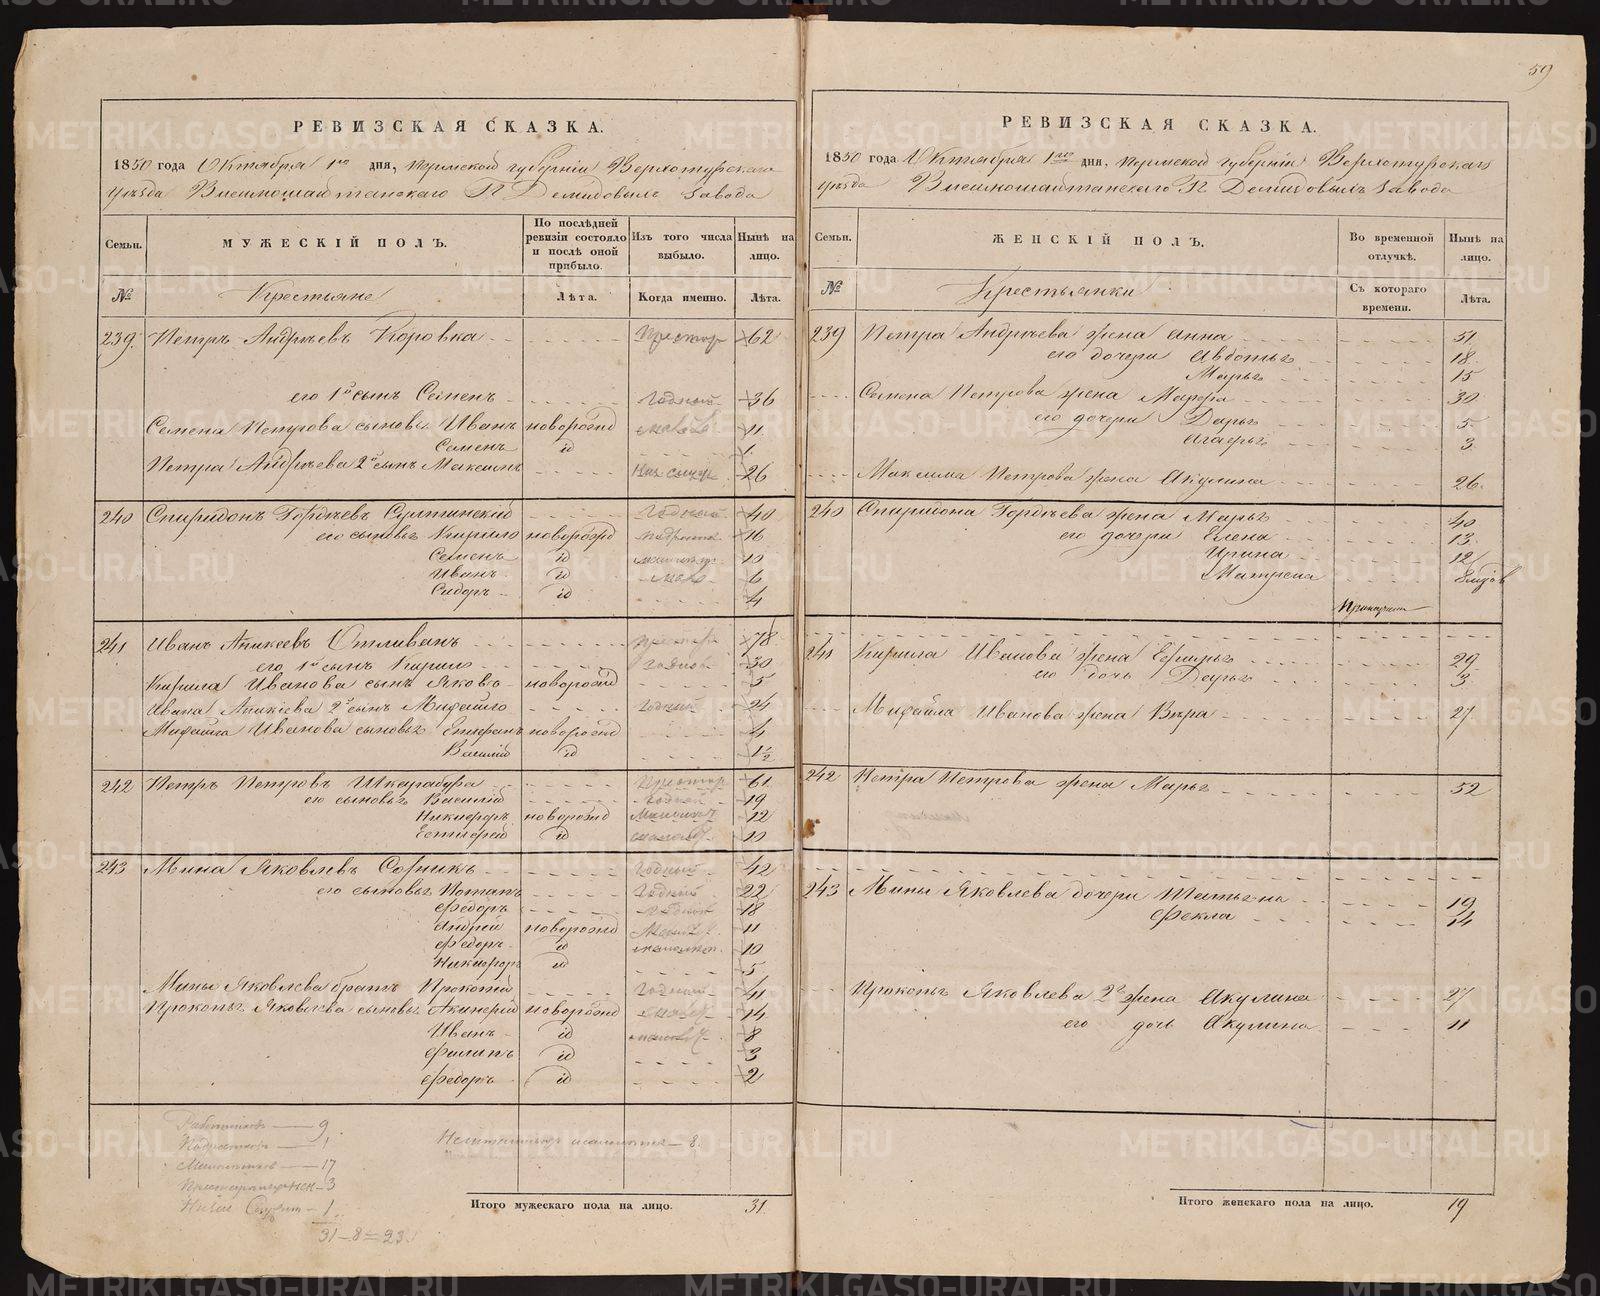 59
РЕВИЗСКАЯ СКАЗКА.
1850 года Октября 1го дня, Пермской губерніи Верхотурскаго
уѣзда Висимошайтанскаго П Демидовыхъ завода
Семьи.
МУЖЕСКІЙ ПОЛЪ.
По послѣдней ревизіи состояло и послѣ оной прибыло.
Изъ того числа выбыло.
Нынѣ на лицо.
№
Крестьяне
Лѣта.
Когда именно.
Лѣта.
239. Петръ Андрѣевъ Коровка престар 62
его 1й сынъ Семенъ Годный 36
Семена Петрова сыновья Иванъ новорожд 11
Семенъ id 1
Петра Андрѣева 2й сынъ Максимъ 26
240 Спиридонъ Гордѣевъ Султинскій Годный 40
его сыновья Кирило новорожд 16
Семенъ id 10
Иванъ id 6
Сидоръ id 4
241 Иванъ Аникеевъ Отливанъ престар 78
его 1й сынъ Кирило годной 30
Кирила Иванова сынъ Яковъ новорожд 5
Ивана Аникіева 2й сынъ Михайло Годный 24
Михайла Иванова сыновья Епифанъ новорожд 4
Василій id 1½
242 Петръ Петровъ Шкарабура престар 61
его сыновья Василій годной 19
Никифоръ новорожд 12
Евстифей id 10
243 Мина Яковлевъ Софикъ Годный 42
его сыновья Потапъ Годный 22
Федоръ 18
Андрей новорожд 11
Федоръ id 10
Никифоръ id 5
Мины Яковлева братъ Прокопій Годный 41
Прокопья Яковлева сыновья Акинфій новорожд 14
Иванъ id 8
Филипъ id 3
Федоръ id 2
Работниковъ — 9
Подростковъ — 1
Малолѣтковъ — 17
Престарѣлыхъ — 3
— 1
31–8=23.
— 8.
Итого мужескаго пола на лицо. 31.
РЕВИЗСКАЯ СКАЗКА.
1850 года Октября 1го дня, Пермской губерніи Верхотурскаго
уѣзда Висимошайтанскаго П Демидовыхъ завода
Семьи.
ЖЕНСКІЙ ПОЛЪ.
Во временной отлучкѣ.
Нынѣ на лицо.
№
Крестьянки
Съ котораго времени.
Лѣта.
239 Петра Андрѣева жена Анна 51
его дочери Авдотья 18
Марья 15
Семена Петрова жена Мавра 30
его дочери Дарья 5
Агафья 3
Максима Петрова жена Акулина 26
240 Спиридона Гордѣева жена Марья 40
его дочери Елена 13
Ирина 12
Матрена
241 Кирила Иванова жена Ефимья 29
его дочь Дарья 3
Михайла Иванова жена Вѣра 27
242 Петра Петрова жена Марья 52
243 Мины Яковлева дочери Татьяна 19
Фекла 14
Прокопья Яковлева 2я жена Акулина 27
его дочь Акулина 11
Итого женскаго пола на лицо. 19
METRIKI.GASO-URAL.RU